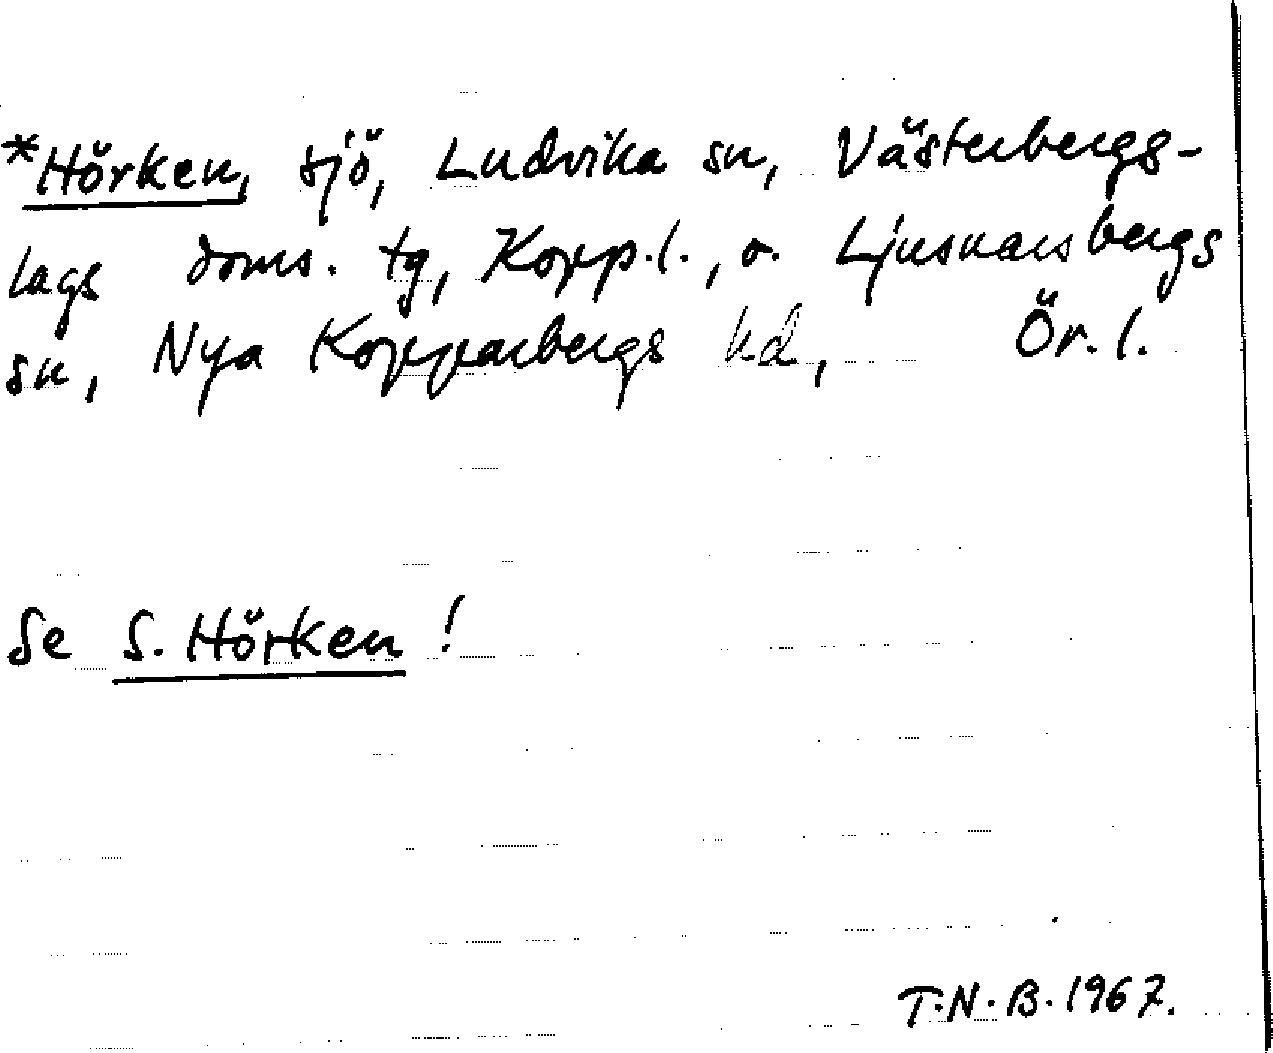 *Hörken, sjö, Ludvika sn, Västerbergs-
lags doms. tg, Kopp.l., o. Ljusnarsbergs
sn, Nya Kopparbergs hd, Ör. l.
Se S. Hörken!
T.N.B. 1967.